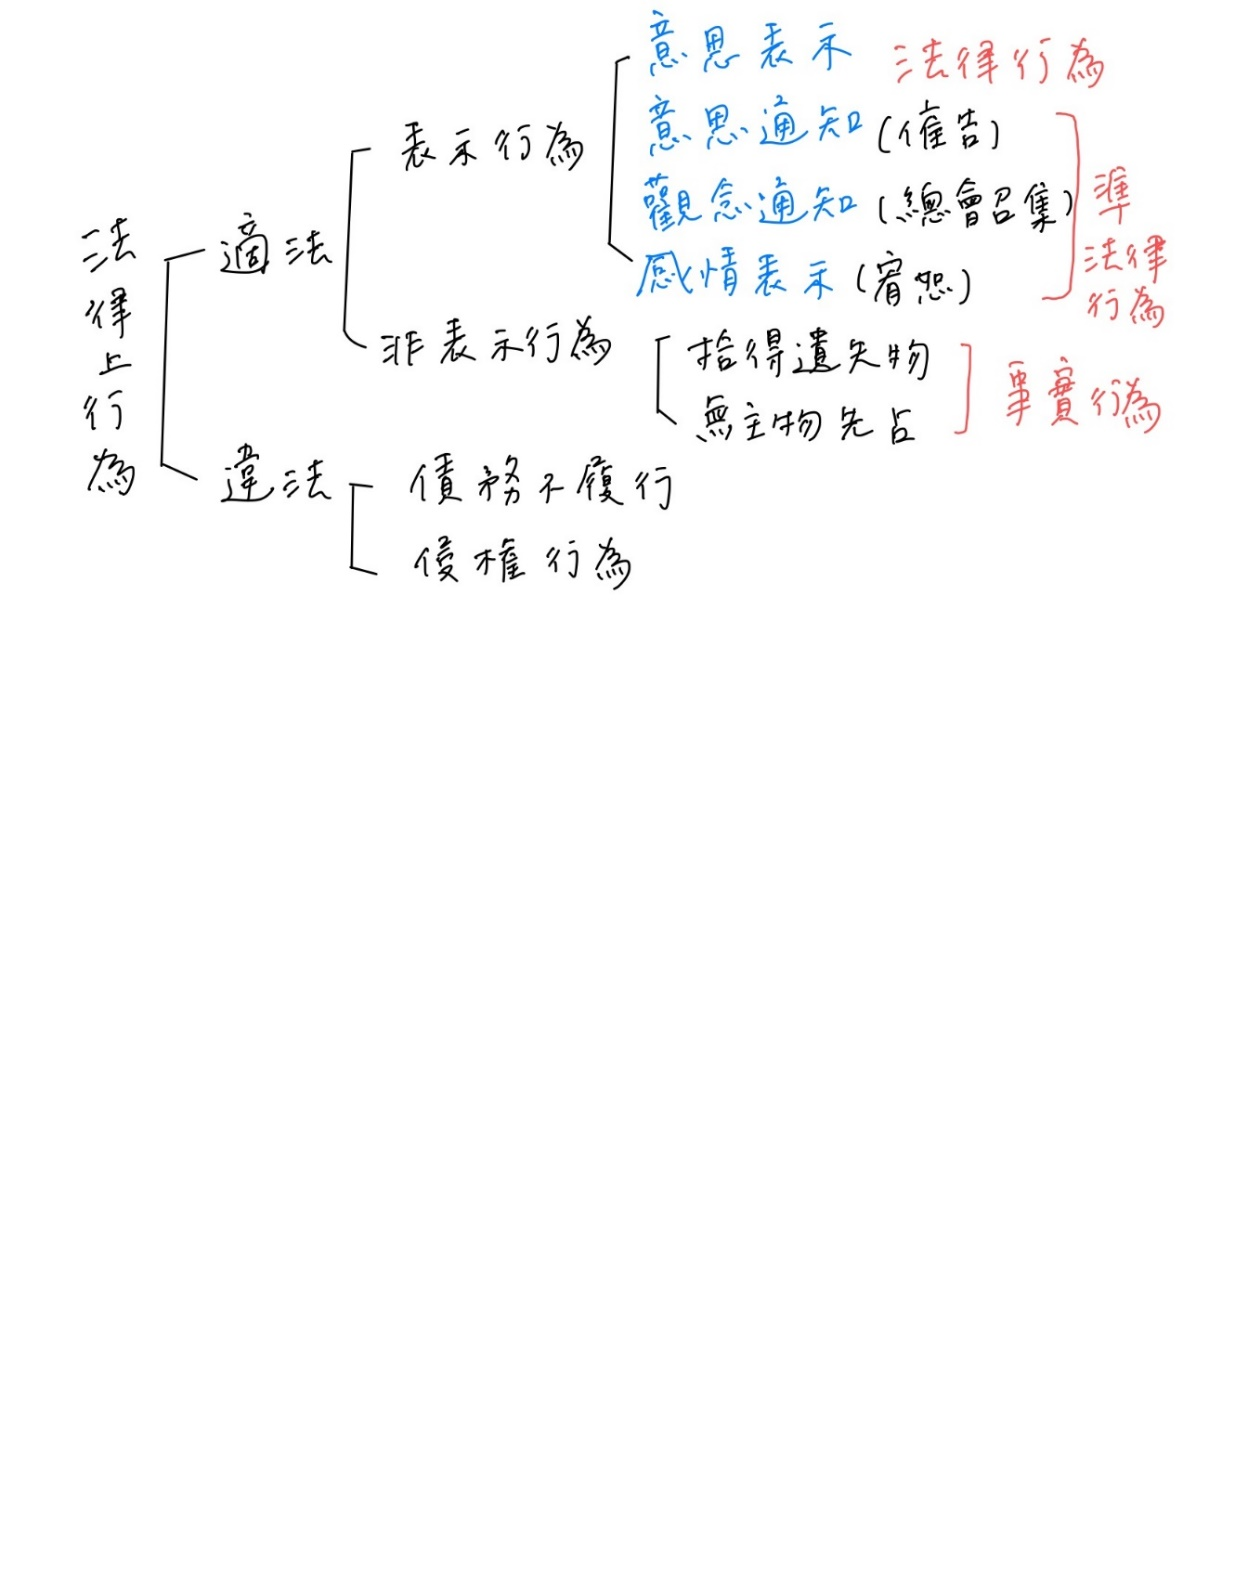 法律上行為
適法
表示行為
意思表示 法律行為
意思通知(催告)
觀念通知(總會召集)
感情表示(宥恕)
準法律行為
非表示行為
拾得遺失物
無主物先占
事實行為
違法
債務不履行
侵權行為